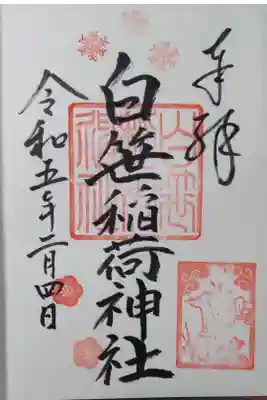 奉拝
白笹稲荷神社
令和五年二月四日